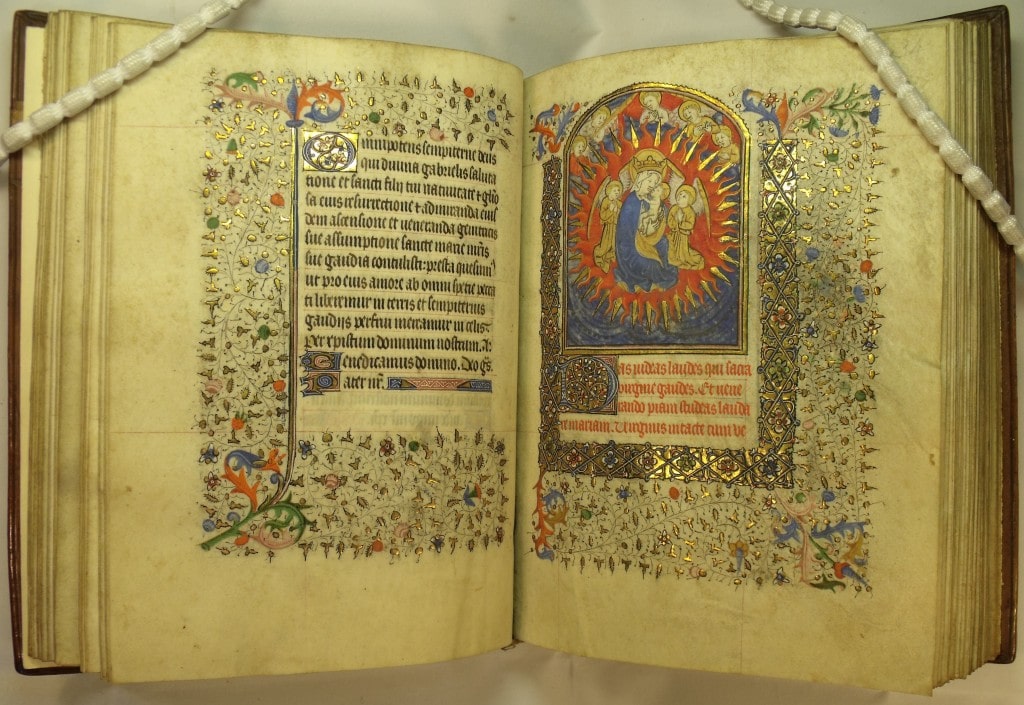 Omnipotens sempiterne deus
qui diuina gabrielis saluta
tione et sancti filij tui natiuitate et glio
sa eius resurrectione et admiranda eius
dem ascensione et veneranda genitricis
sue assumptione sancte marie mris
sue gaudia contulisti: presta quesum9
ut pro eius amore ab omni specie pecca
ti liberemur in terris et sempiternis
gaudijs perfrui mereamur in celis
Per xpistum dominum nostrum. A:
Benedicamus domino. Deo gs.
Pater nr.
Has uideas laudes qui sacra
virgine gaudes. Et vene
rando piam studeas lauda
re mariam. Virginis intacte cum ve